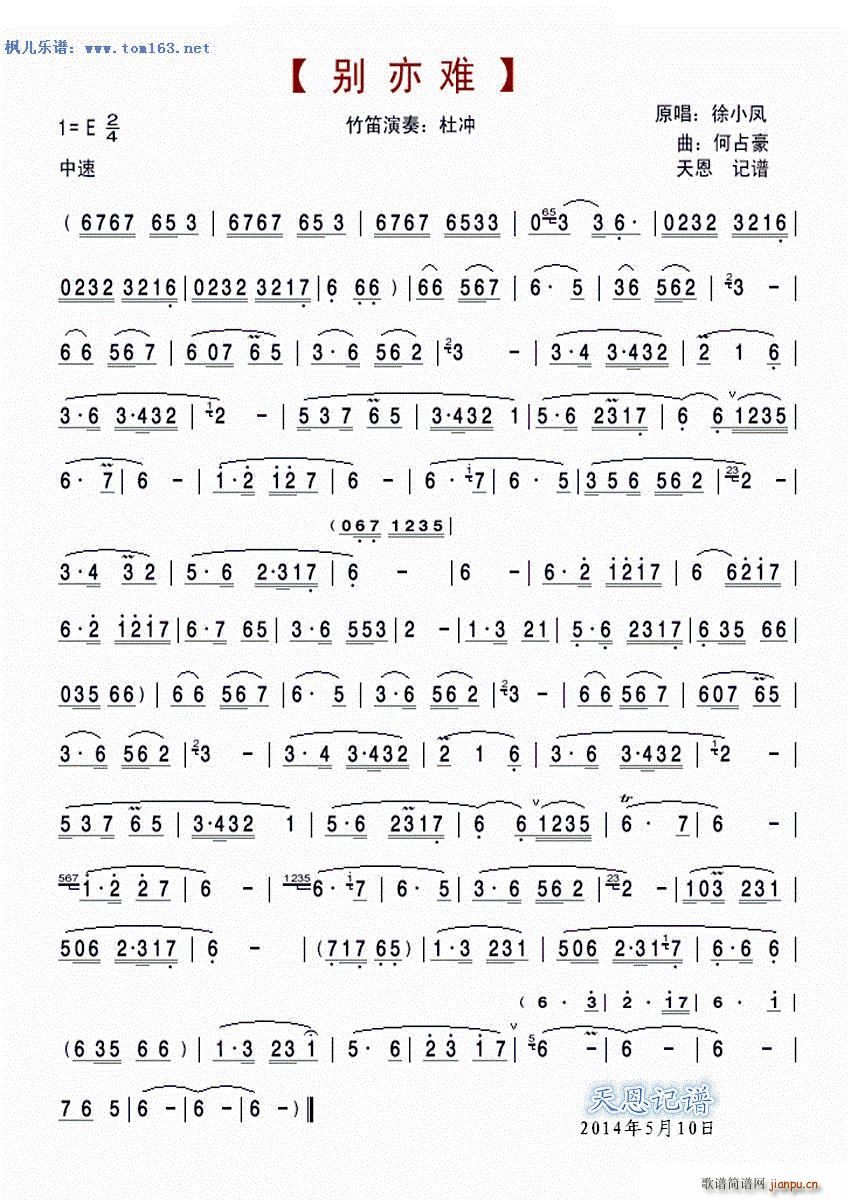 枫儿乐谱：www.tom163.net
【 别 亦 难 】
1=E 2/4
竹笛演奏：杜冲
原唱：徐小凤
曲：何占豪
中速
天恩 记谱
( 6767 653 | 6767 653 | 6767 6533 | 0 65 3 3 6· | 0232 3216 |
0232 3216 | 0232 3217 | 6 66 ) | 66 567 | 6· 5 | 36 562 | 2 3 - |
66 567 | 607 65 | 3·6 562 | 2 3 - | 3·4 3·432 | 2 1 6 |
3·6 3·432 | 1 2 - | 537 65 | 3·432 1 | 5·6 2317 | 6 6 v 1235 |
6· 7 | 6 - | 1·2 127 | 6 - | 6· i 7 | 6· 5 | 356 562 | 23 2 - |
( 067 1235 |
3·4 32 | 5·6 2·317 | 6 - | 6 - | 6·2 1217 | 6 6217 |
6·2 1217 | 6·7 65 | 3·6 553 | 2 - | 1·3 21 | 5·6 2317 | 635 66 |
035 66 ) | 66 567 | 6· 5 | 3·6 562 | 2 3 - | 66 567 | 607 65 |
3·6 562 | 2 3 - | 3·4 3·432 | 2 1 6 | 3·6 3·432 | 1 2 - |
537 65 | 3·432 1 | 5·6 2317 | 6 6 v 1235 | tr 6· 7 | 6 - |
567 1·2 27 | 6 - | 1235 6· i 7 | 6· 5 | 3·6 562 | 23 2 - | 103 231 |
506 2·317 | 6 - | ( 717 65 ) | 1·3 231 | 506 2·31 1 7 | 6·6 6 |
( 6· 3 | 2· 17 | 6· 1
( 635 66 ) | 1·3 231 | 5· 6 | 23 17 v | 5 6 - | 6 - | 6 - |
76 5 | 6 - | 6 - | 6 - ) ‖
天恩记谱
2014年5月10日
歌谱简谱网 jianpu.cn